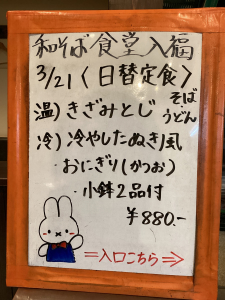 和そば食堂入福
3/21〈日替定食〉
温)きざみとじ そば うどん
冷)冷やしたぬき風
・おにぎり(かつお)
・小鉢2品付
¥880.-
=入口こちら⇒